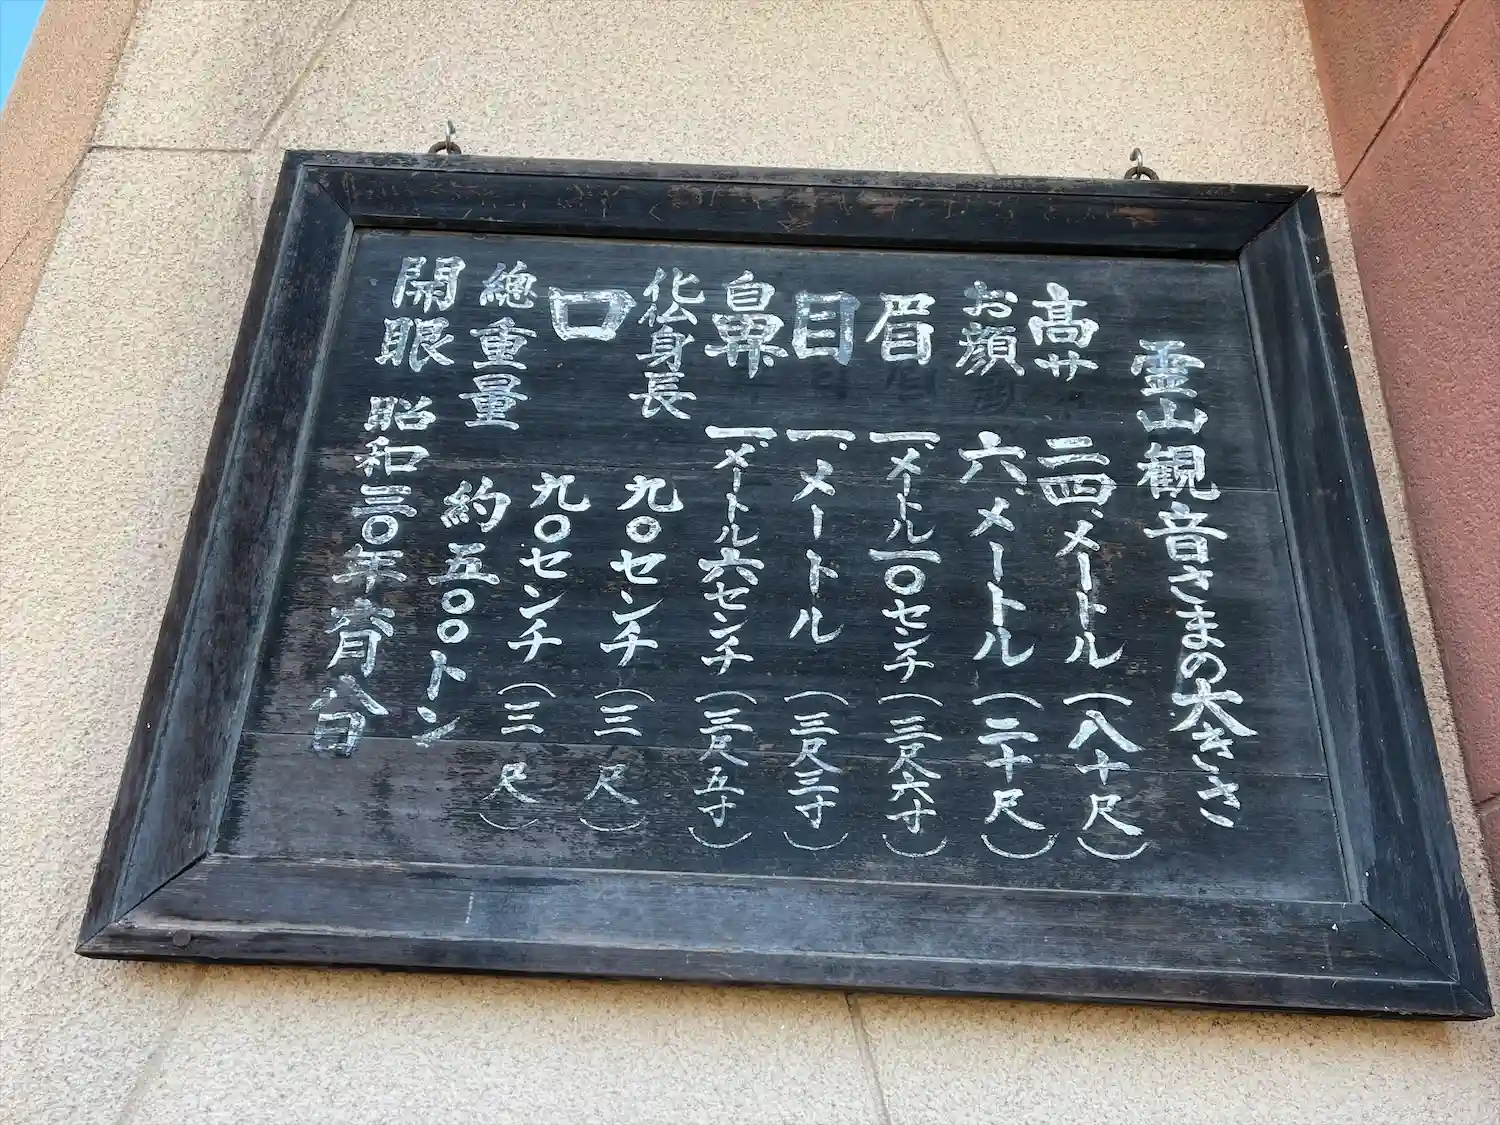 霊山観音さまの大きさ
高サ 二四、メートル（八十尺）
お顔 六、メートル（二十尺）
眉 一、メートル一〇センチ（三尺六寸）
目 一、メートル（三尺三寸）
鼻 一、メートル六センチ（三尺五寸）
化仏身長 九〇センチ（三尺）
口 九〇センチ（三尺）
總重量 約五〇〇トン
開眼 昭和三〇年六月八日